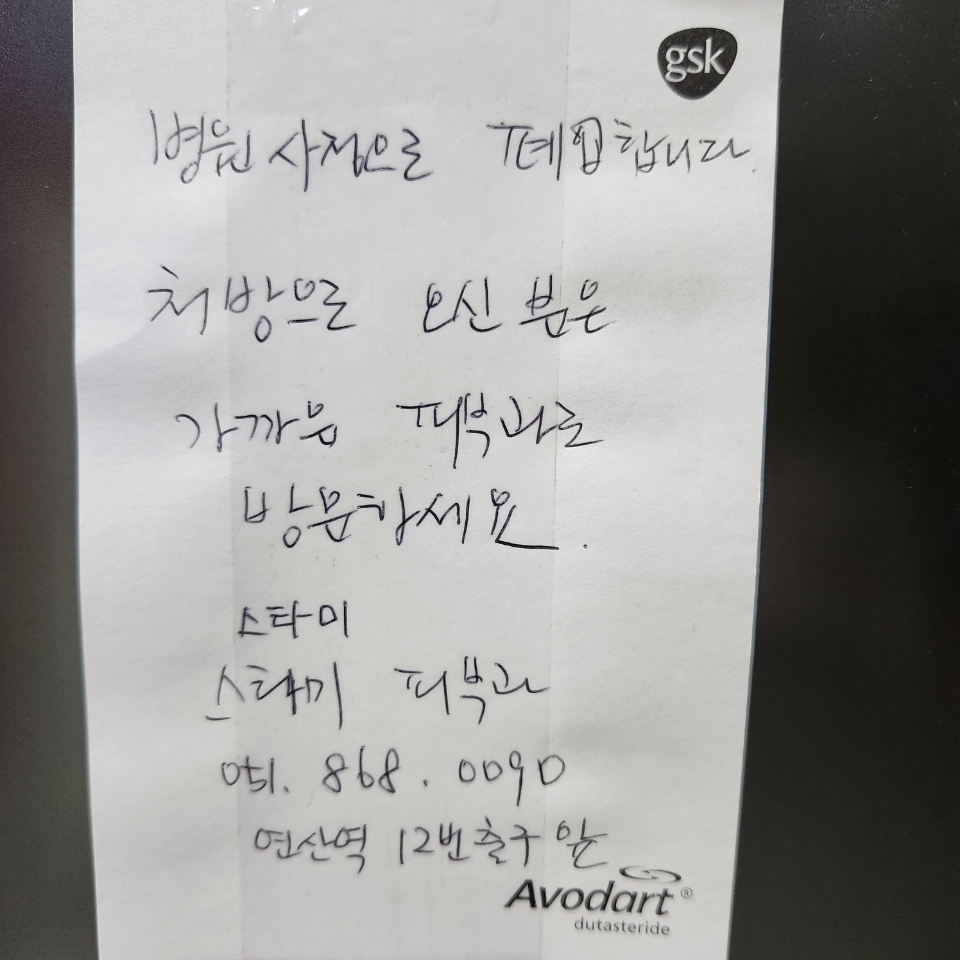 gsk
병원 사정으로 폐업합니다.
처방으로 오신 분은
가까운 피부과로
방문하세요.
스타미
스타미 피부과
051. 868. 0090
연산역 12번출구 앞
Avodart®
dutasteride